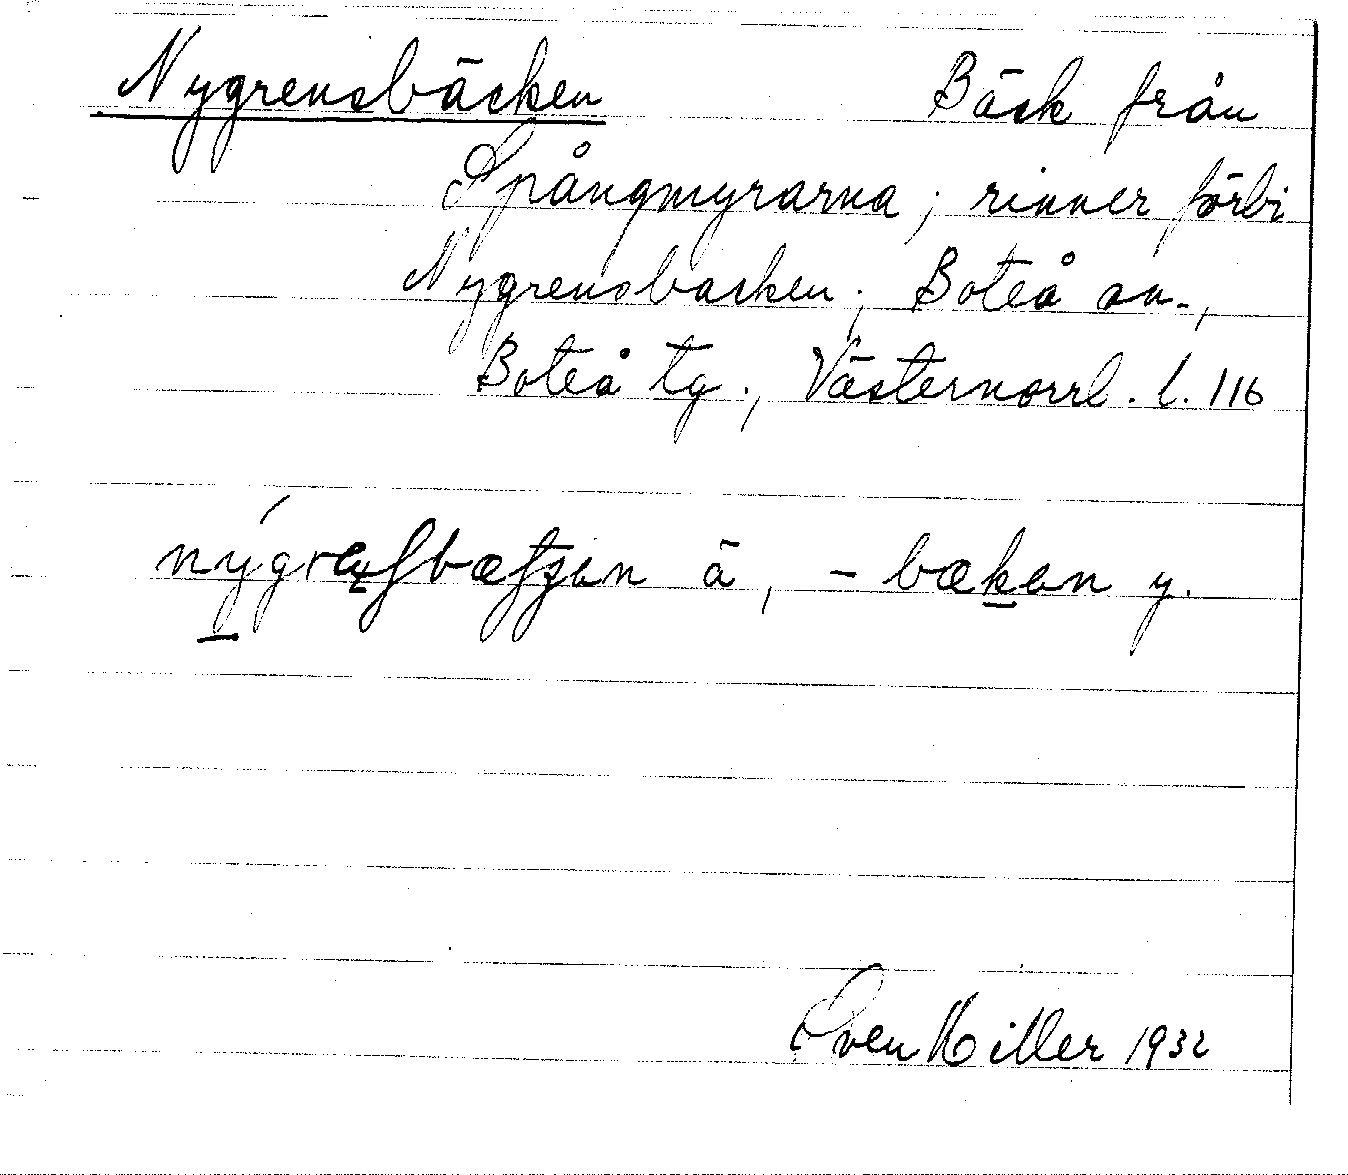 Nygrensbäcken Bäck från
Spångmyrarna; rinner förbi
Nygrensbacken; Boteå sn.,
Boteå tg., Västernorrl. l. 116
ä, - bækan y.
Sven Hiller 1932